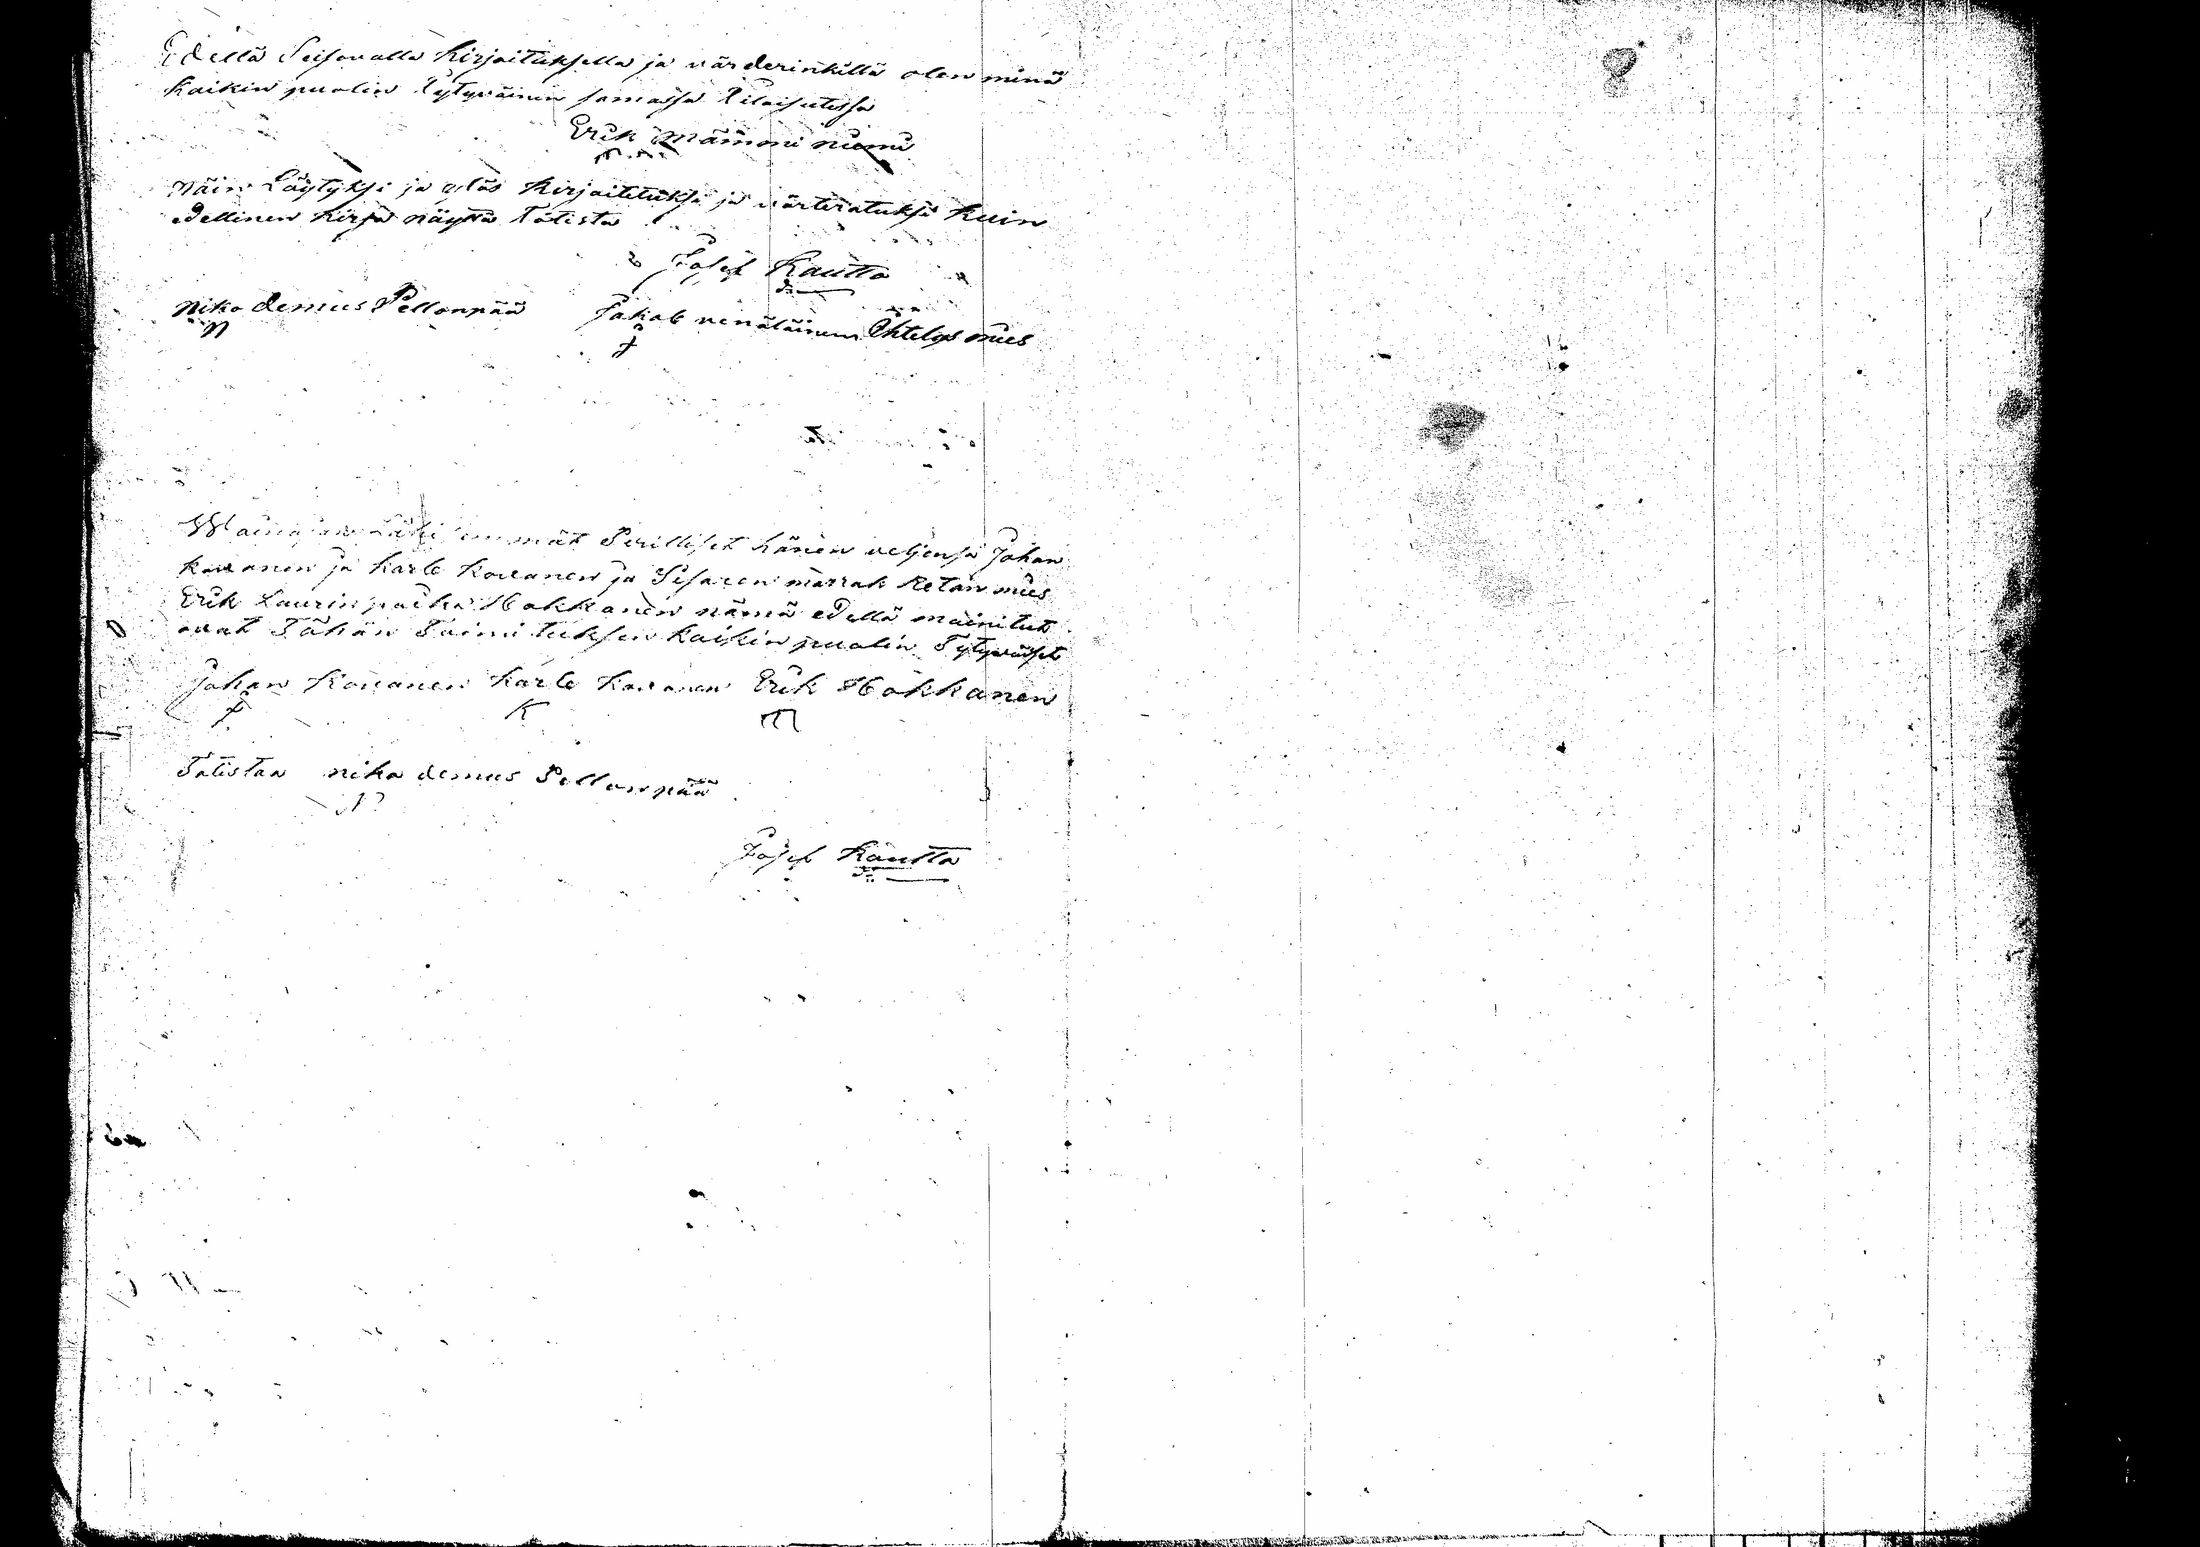 Edellä Seisovalla Kirjoituksella ja värderinkillä olen minä
kaikin puolin Tytyväinen samassa Tilaisutessa
Erik Mämmi niemi
näin Löytyksi ja ylös Kirjoitetuksi ja värteratuksi kuin
edellinen kirja näyttä Totista
Josef Kautto
Nikodemus Pellonpää Jakob venäläinen Ehtelys mies
J
Perilliset hänen veljensä Johan
ja Karle Kovanen ja Sisaren mies
Erik Hakkanen nämä edellä mainitut
ovat Tähän Toimituksen kaikin puolin Tytyväiset
Johan Kovanen Karle Kovanen Erik Hakkanen
K
Totistaa nikodemus Pellonpää
N
Josef Kautto